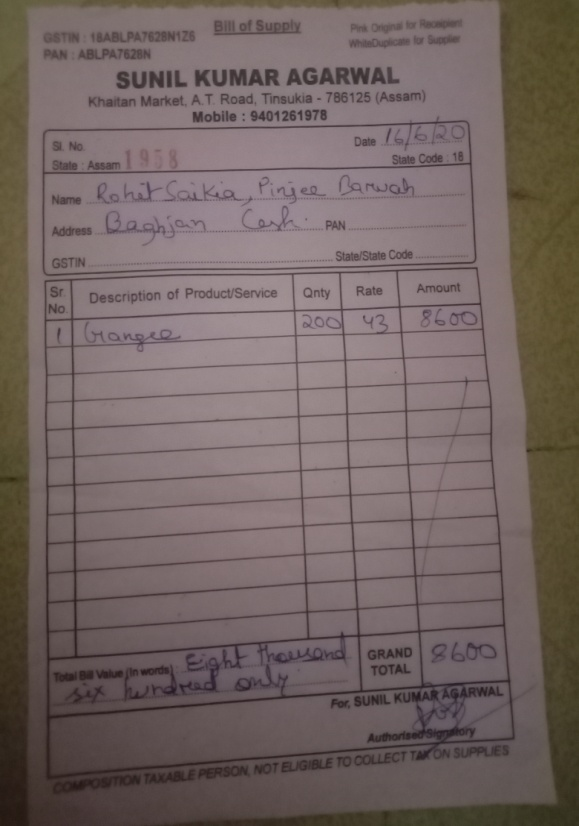 Bill of Supply
GSTIN : 18ABLPA7628N1Z6
PAN : ABLPA7628N
Pink Original for Receipient
White Duplicate for Supplier
SUNIL KUMAR AGARWAL
Khaitan Market, A.T. Road, Tinsukia - 786125 (Assam)
Mobile : 9401261978
Sl. No. 1958
Date 16/6/20
State : Assam
State Code : 18
Name Rohit Saikia, Pinjee Barwah
Address Baghjan Cash. PAN
GSTIN State/State Code
Sr. No. Description of Product/Service Qnty Rate Amount
1 Gangee 200 43 8600
Total Bill Value (In words) : Eight thousand
six hundred only
GRAND TOTAL 8600
For, SUNIL KUMAR AGARWAL
Authorised Signatory
COMPOSITION TAXABLE PERSON, NOT ELIGIBLE TO COLLECT TAX ON SUPPLIES